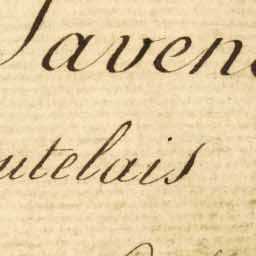 Javen
utelais